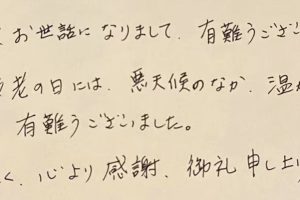 お世話になりまして、有難うござ
老の日には、悪天候のなか、温
有難うございました。
く、心より感謝、御礼申し上